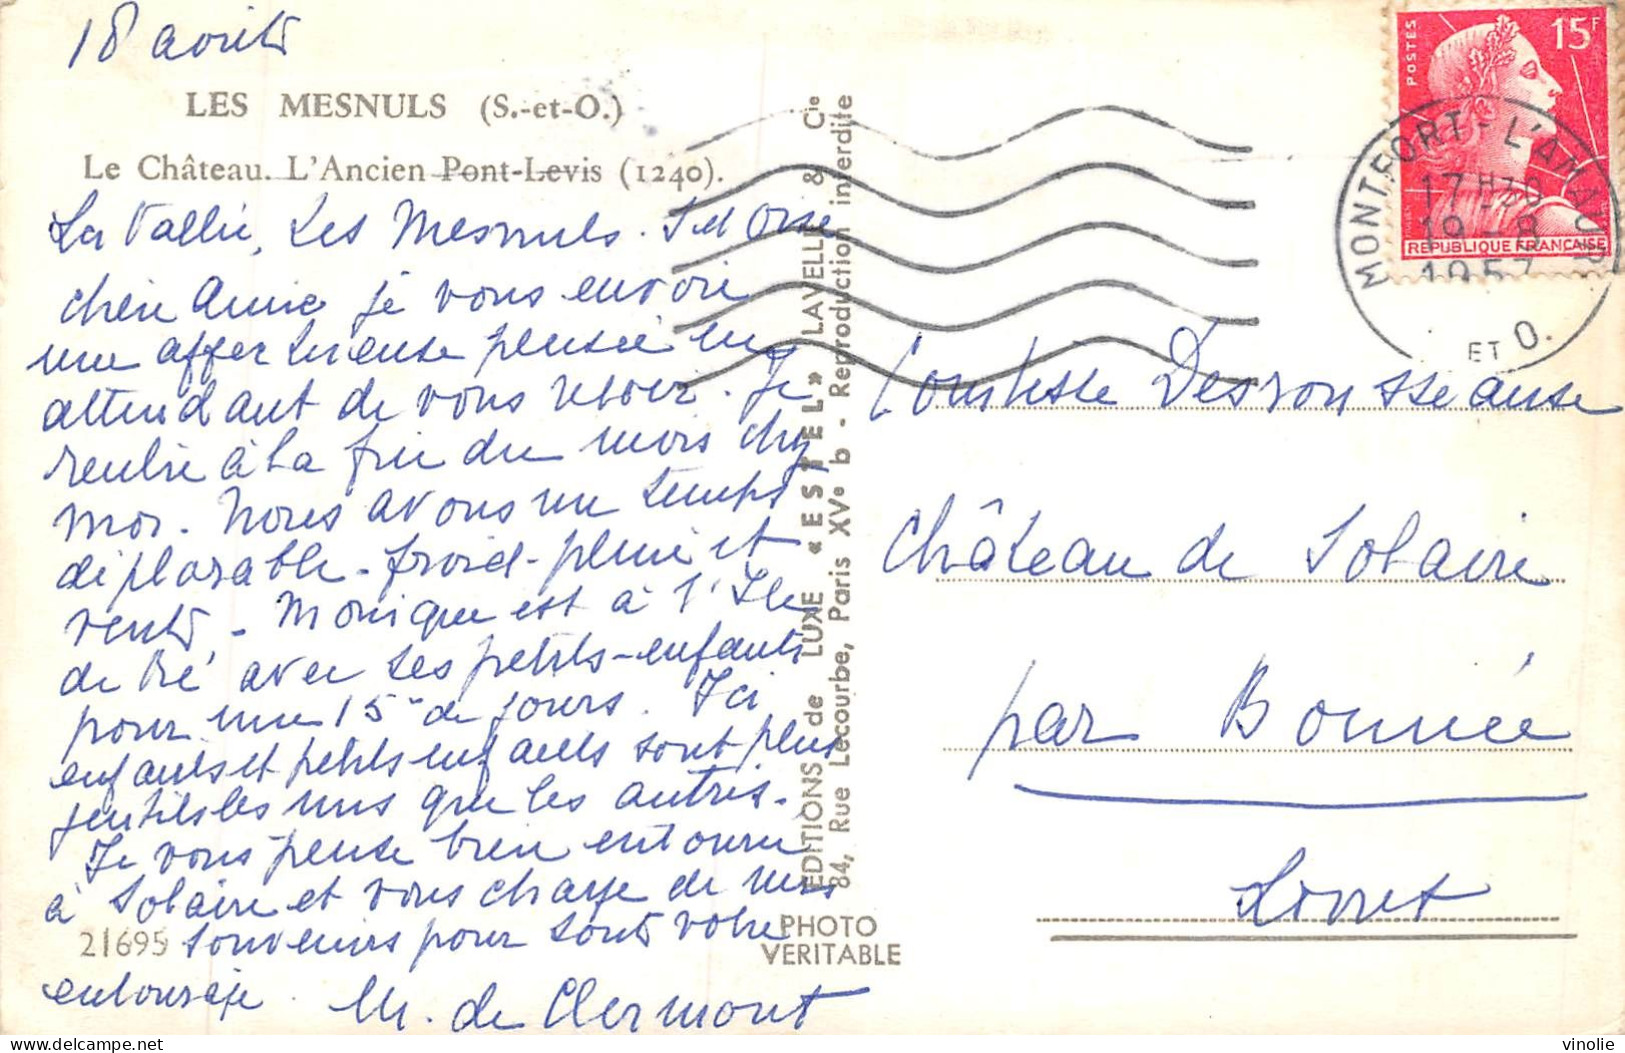 18 août
LES MESNULS (S.-et-O.)
Le Château. L'Ancien Pont-Levis (1240).
La Vallée, Les Mesnuls. S et Oise
chère Amie je vous envoie
une affectueuse pensée en
attendant de vous revoir. Je
rentre à la fin du mois chez
moi. Nous avons un temps
déplorable - froid - pluie et
vent. Monique est à l'Ile
de Ré avec ses petits-enfants
pour une 15ne de jours. Ici
enfants et petits enfants sont plus
gentils les uns que les autres.
Je vous pense bien entourée
à Solaire et vous charge de mes
souvenirs pour tout votre
entourage. M. de Clermont
21695
EDITIONS de LUXE « ESTEL » LAVELLE & Cie
84, Rue Lecourbe, Paris XVe b - Reproduction interdite
PHOTO
VERITABLE
POSTES
15F
REPUBLIQUE FRANÇAISE
MONTFORT-L'AMAURY
17H30
19-8
1957
ET O.
Comtesse Desrousseaux
Château de Solaire
par Bonnée
Loiret
vinolie